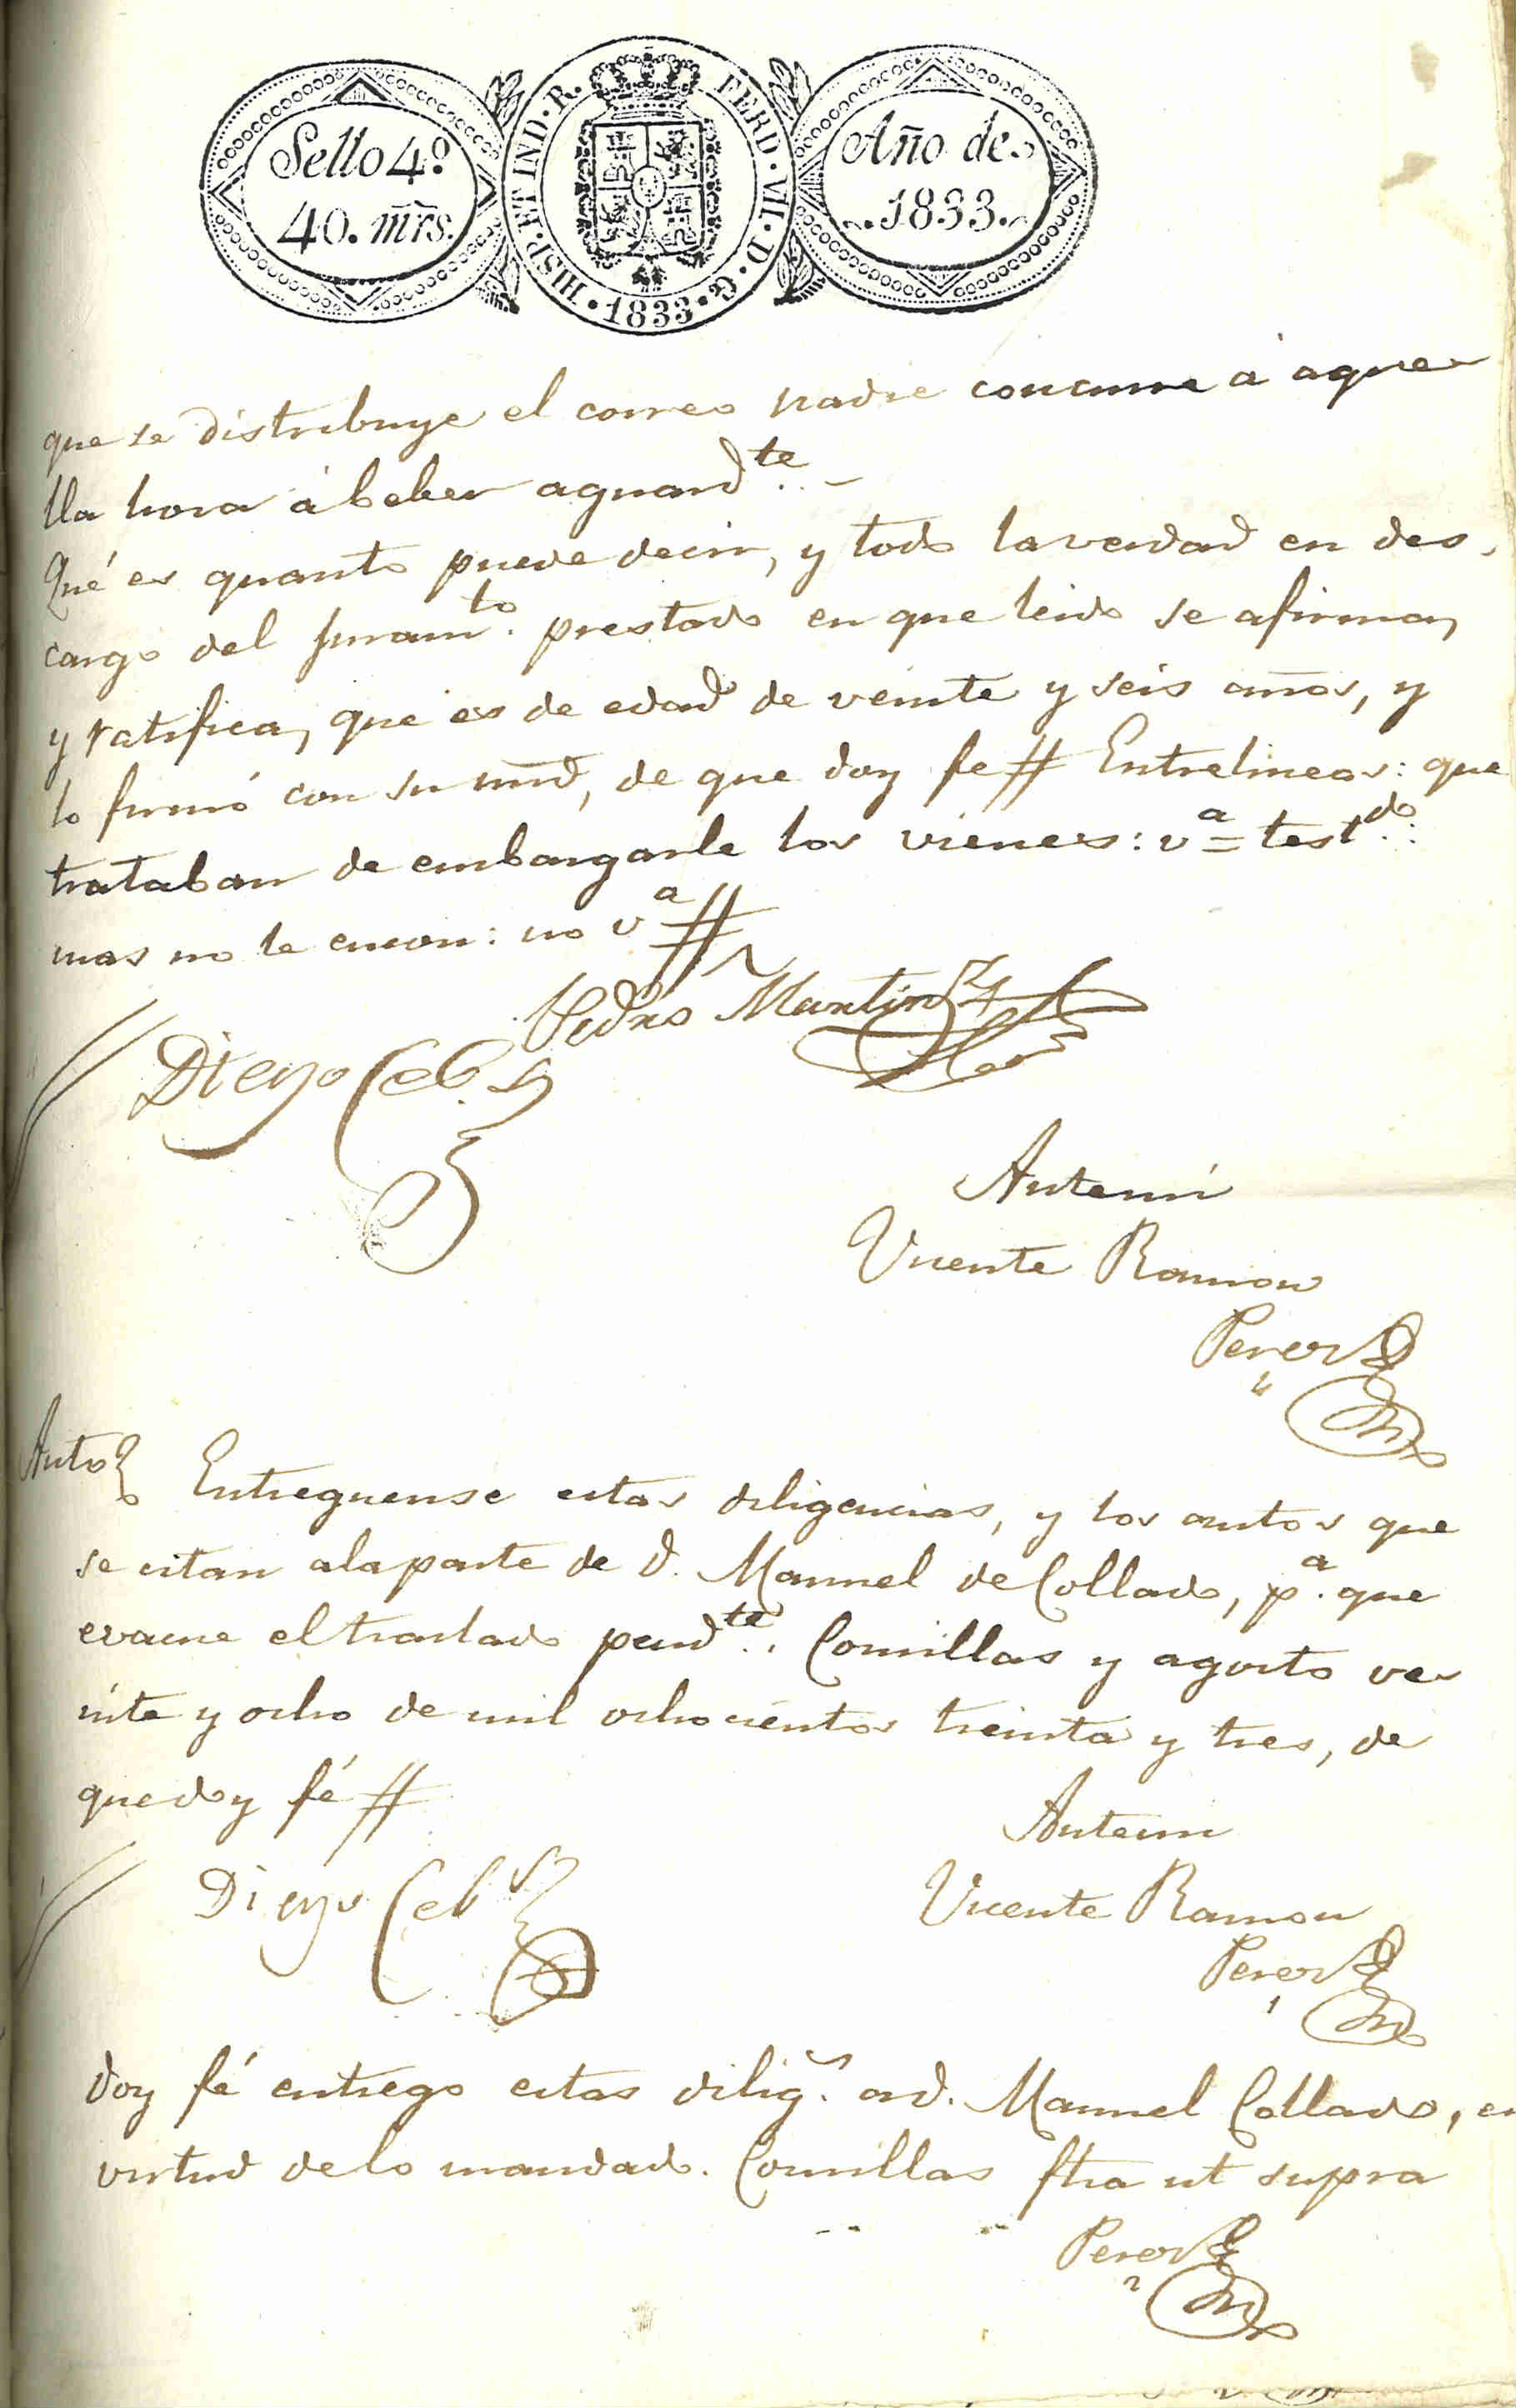 Sello 4º
40. mrs.
HISP. ET IND. R. FERD. VII. D. G. 1833
Año de
1833.
que se distribuye el correo nadie concurre à aque
lla hora à beber aguardte. -
Qué es quanto puede decir, y todo la verdad en des,
cargo del juramto. prestado en que leido se afirma,
y ratifica, que es de edad de veinte y seis años, y
lo firmó con su mrd, de que doy fe # Entrelineas: que
trataban de embargarle los vienes: va = testdo:
mas no le encon: no va #
Pedro Martinz
Diego Ceb.s
Antemi
Vicente Ramon
Perez
Auto
Entreguense estas diligencias, y los autos que
se citan ala parte de D. Manuel de Collado, pa. que
evacue el traslado pendte. Comillas y agosto ve
inte y ocho de mil ochocientos treinta y tres, de
que doy fé #
Antemi
Diego Ceb.s
Vicente Ramon
Perez
Doy fé entrego estas dilig.s a D. Manuel Collado, en
virtud de lo mandado. Comillas ftra ut supra
Perez